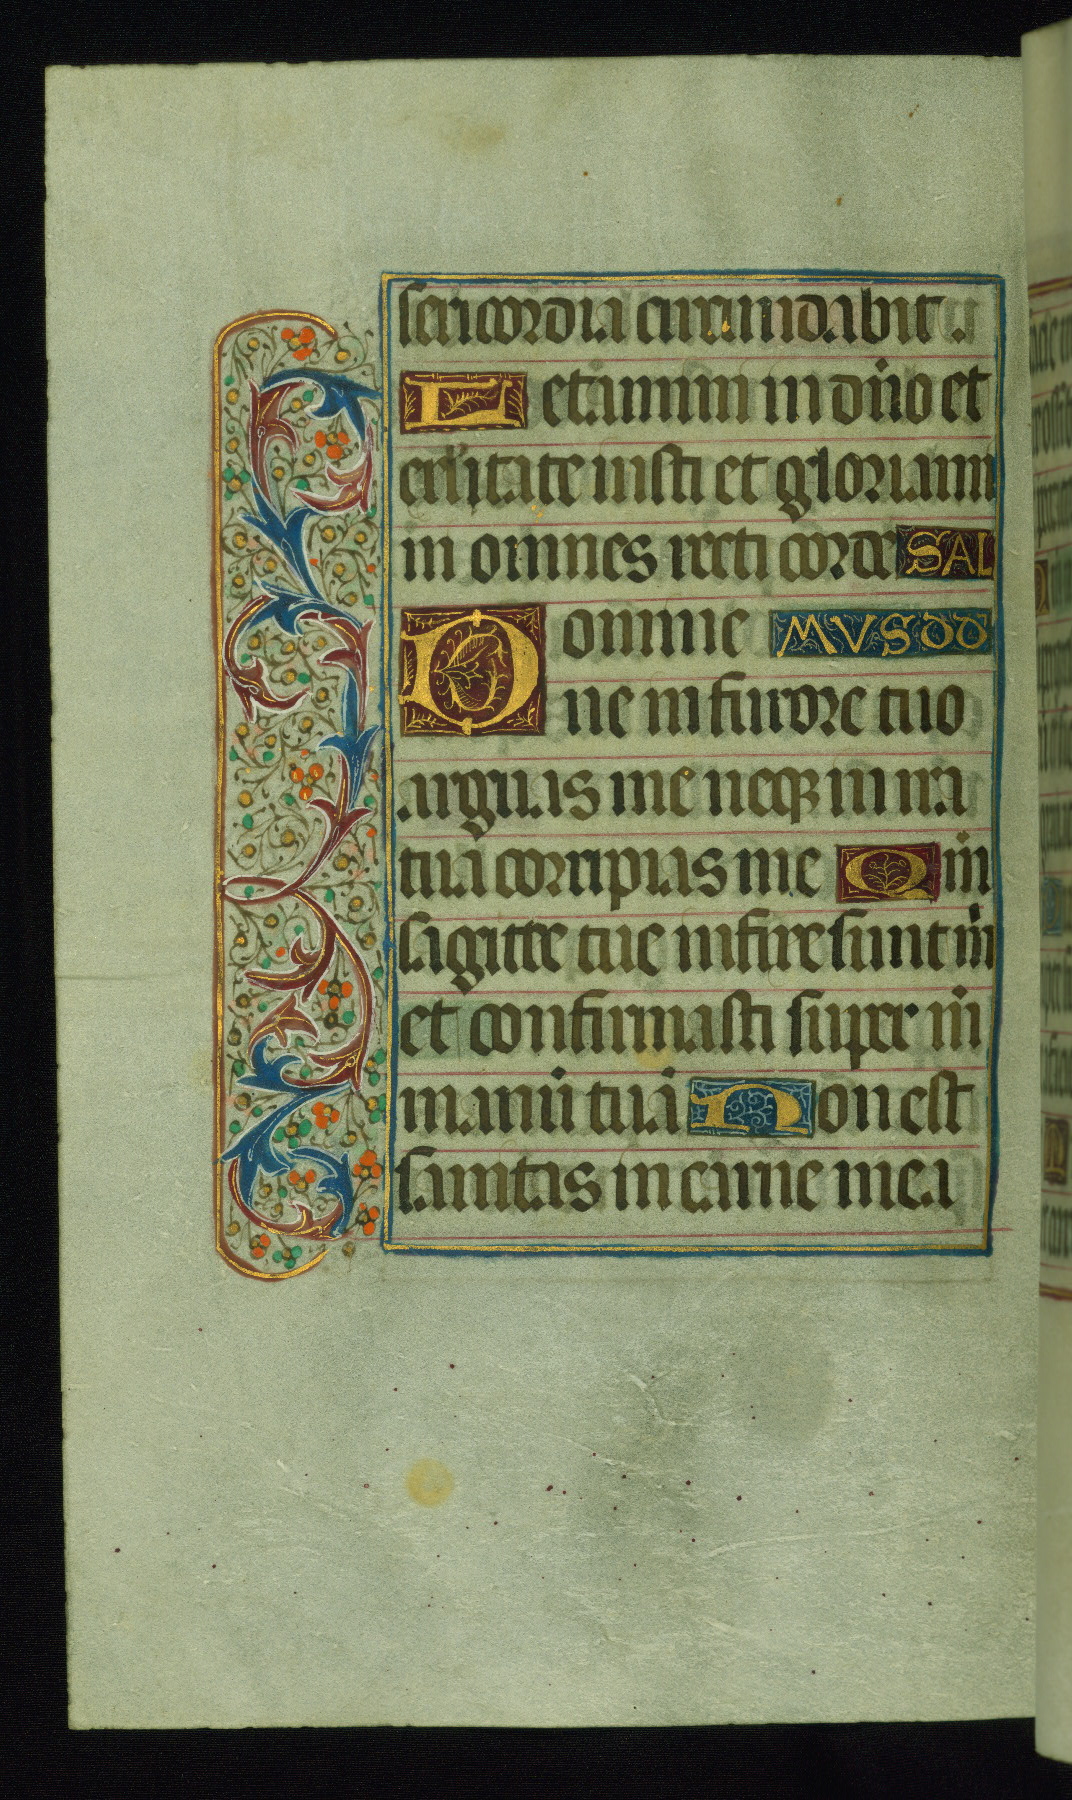 sericordia circumdabit.
Letamini in dn̄o et
exultate iusti et gloriami
in omnes recti corde SAL
Domine MVS DD
ne in furore tuo
arguas me neqꝫ in ira
tua corripias me Qm̄
sagitte tue infixe sunt m̄
et confirmasti super m̄
manū tuā Non est
sanitas in carne mea